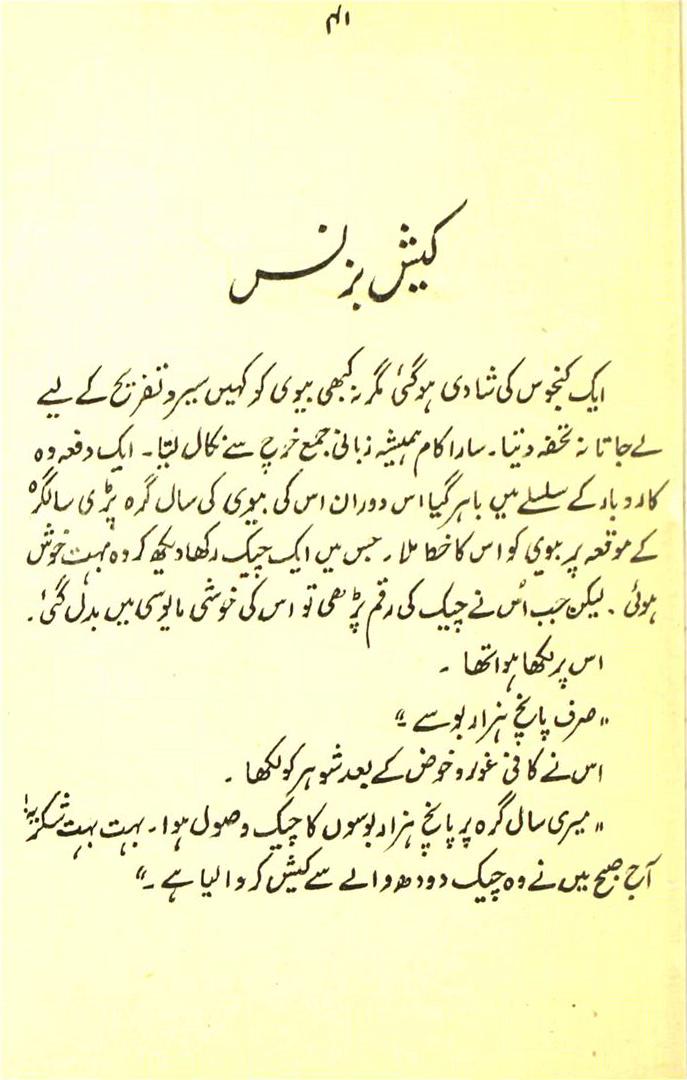 ۴۱
کیش بزنس
ایک کنجوس کی شادی ہوگئی مگر نہ کبھی بیوی کو کہیں سیرو تفریح کے لیے
لے جاتا نہ تحفہ دیتا۔ سارا کام ہمیشہ زبانی جمع خرچ سے نکال لیتا۔ ایک دفعہ وہ
کاروبار کے سلسلے میں باہر گیا اس دوران اس کی بیوی کی سال گرہ پڑی سالگرہ
کے موقعہ پر بیوی کو اس کا خط ملا۔ جس میں ایک چیک رکھا دیکھ کر وہ بہت خوش
ہوئی۔ لیکن جب اُس نے چیک کی رقم پڑھی تو اس کی خوشی مایوسی میں بدل گئی۔
اس پر لکھا ہوا تھا۔
"صرف پانچ ہزار بوسے"
اس نے کافی غور و خوض کے بعد شوہر کو لکھا۔
"میری سال گرہ پر پانچ ہزار بوسوں کا چیک وصول ہوا۔ بہت بہت شکریہ!
آج صبح میں نے وہ چیک دودھ والے سے کیش کروا لیا ہے۔"